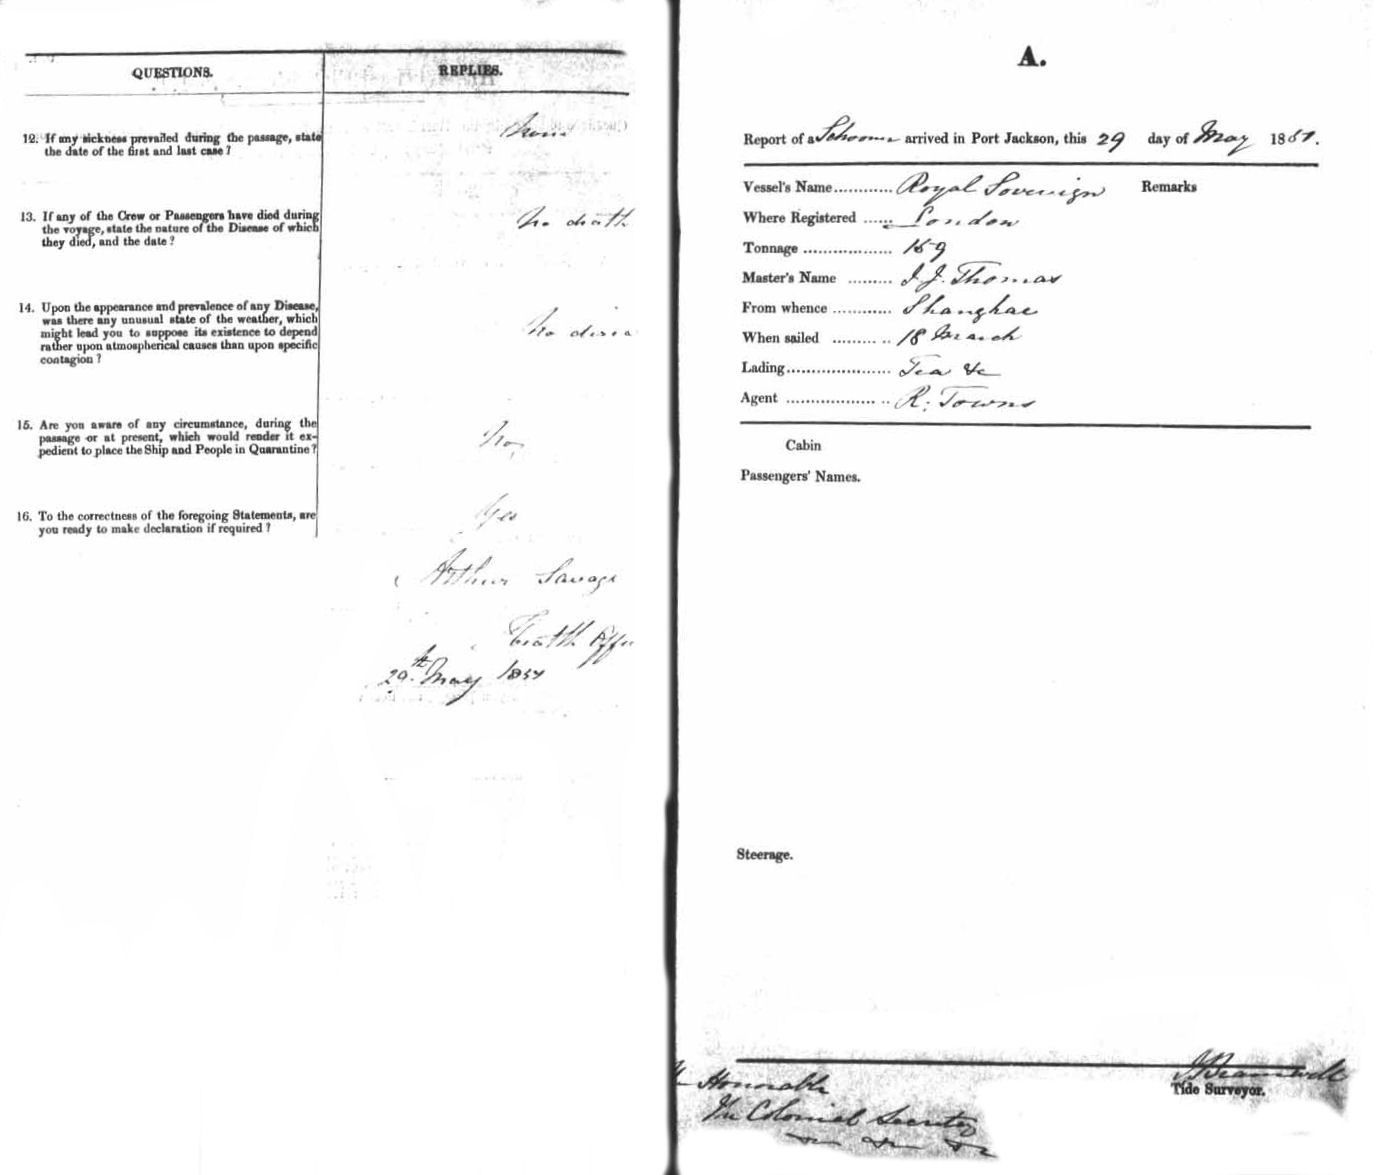 QUESTIONS.
REPLIES.
12. If any sickness prevailed during the passage, state
the date of the first and last case?
None
13. If any of the Crew or Passengers have died during
the voyage, state the nature of the Disease of which
they died, and the date?
No death
14. Upon the appearance and prevalence of any Disease,
was there any unusual state of the weather, which
might lead you to suppose its existence to depend
rather upon atmospherical causes than upon specific
contagion?
No disea
15. Are you aware of any circumstance, during the
passage or at present, which would render it ex-
pedient to place the Ship and People in Quarantine?
No,
16. To the correctness of the foregoing Statements, are
you ready to make declaration if required?
Yes
Arthur Savage
Health Offi
29th May 1857
A.
Report of a Schooner arrived in Port Jackson, this 29 day of May 1857.
Vessel's Name............ Royal Sovereign Remarks
Where Registered ...... London
Tonnage .................. 159
Master's Name ......... J. J. Thomas
From whence ............ Shanghae
When sailed ......... .. 18 March
Lading...................... Tea &c
Agent .................. .. R. Towns
Cabin
Passengers' Names.
Steerage.
J Bramwell
Tide Surveyor.
Honorable
The Colonial Secretary